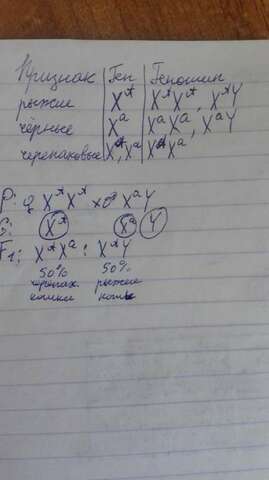 Признак Ген Генотип
рыжие X^A X^A X^A, X^A Y
чёрные X^a X^a X^a, X^a Y
черепаховые X^A, X^a X^A X^a
P: ♀ X^A X^A × ♂ X^a Y
G: X^A X^a Y
F₁: X^A X^a : X^A Y
50% 50%
черепах. рыжие
кошки коты